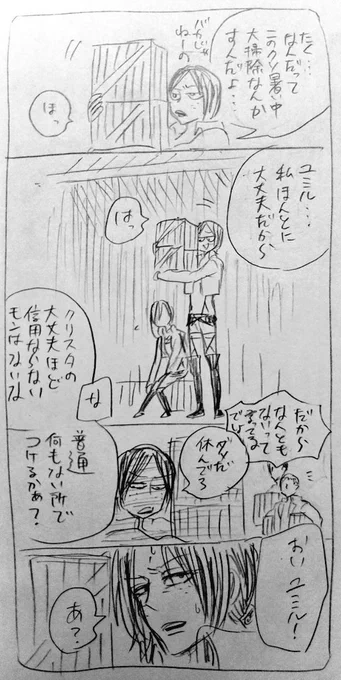 たく…
なんだって
このクソ暑い中
大掃除なんか
すんだよ…
バカじゃ
ねーの
ほっ
ユミル…
私ほんとに
大丈夫だから〜
はっ
クリスタの
大丈夫ほど
信用ならない
モンはないな
な
だから〜
なんとも
ないって
言ってる
でしょ
ダメだ
休んでろ
普通
何もない所で
コケるかぁ?
おい
ユミル!
あ?